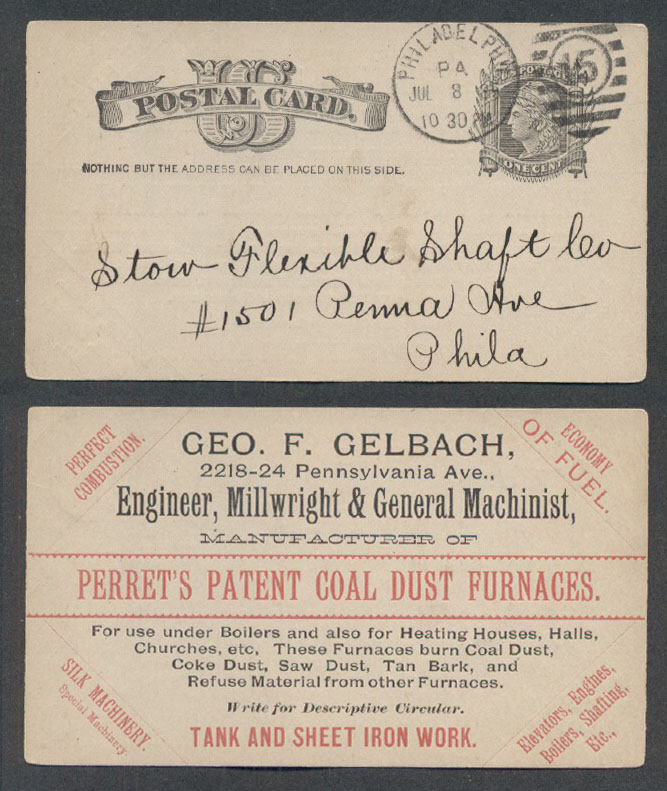 US
POSTAL CARD.
NOTHING BUT THE ADDRESS CAN BE PLACED ON THIS SIDE.
PHILADELPHIA
PA
JUL 8
10 30
15
ONE CENT
Stow Flexible Shaft Co
#1501 Penna Ave
Phila
PERFECT
COMBUSTION.
ECONOMY
OF FUEL.
GEO. F. GELBACH,
2218-24 Pennsylvania Ave.,
Engineer, Millwright & General Machinist,
MANUFACTURER OF
PERRET'S PATENT COAL DUST FURNACES.
For use under Boilers and also for Heating Houses, Halls,
Churches, etc, These Furnaces burn Coal Dust,
Coke Dust, Saw Dust, Tan Bark, and
Refuse Material from other Furnaces.
Write for Descriptive Circular.
TANK AND SHEET IRON WORK.
SILK MACHINERY.
Special Machinery.
Elevators, Engines,
Boilers, Shafting,
Etc.,